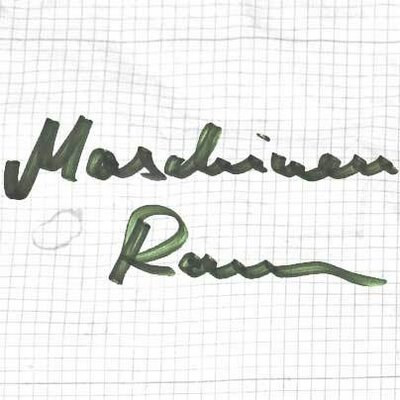 Maschinen
Raum